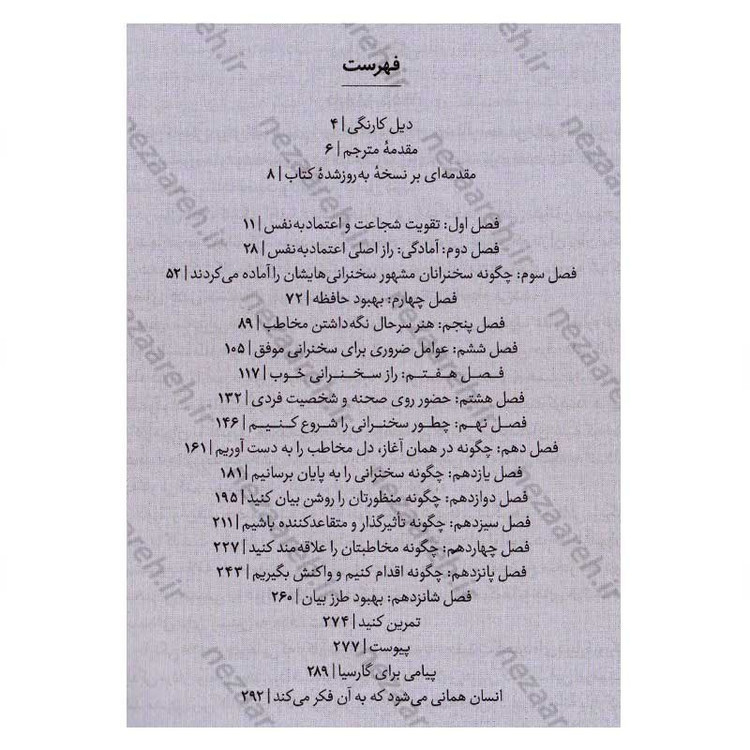 فهرست
دیل کارنگی | ۴
مقدمهٔ مترجم | ۶
مقدمه‌ای بر نسخهٔ به‌روزشدهٔ کتاب | ۸
فصل اول: تقویت شجاعت و اعتمادبه‌نفس | ۱۱
فصل دوم: آمادگی: راز اصلی اعتمادبه‌نفس | ۲۸
فصل سوم: چگونه سخنرانان مشهور سخنرانی‌هایشان را آماده می‌کردند | ۵۲
فصل چهارم: بهبود حافظه | ۷۲
فصل پنجم: هنر سرحال نگه‌داشتن مخاطب | ۸۹
فصل ششم: عوامل ضروری برای سخنرانی موفق | ۱۰۵
فـصـل هـفـتـم: راز سـخـنـرانـی خـوب | ۱۱۷
فصل هشتم: حضور روی صحنه و شخصیت فردی | ۱۳۲
فصل نهم: چطـور سخنـرانی را شـروع کـنـیـم | ۱۴۶
فصل دهم: چگونه در همان آغاز، دل مخاطب را به دست آوریم | ۱۶۱
فصل یازدهم: چگونه سخنرانی را به پایان برسانیم | ۱۸۱
فصل دوازدهم: چگونه منظورتان را روشن بیان کنید | ۱۹۵
فصل سیزدهم: چگونه تأثیرگذار و متقاعدکننده باشیم | ۲۱۱
فصل چهاردهم: چگونه مخاطبتان را علاقه‌مند کنید | ۲۲۷
فصل پانزدهم: چگونه اقدام کنیم و واکنش بگیریم | ۲۴۳
فصل شانزدهم: بهبود طرز بیان | ۲۶۰
تمرین کنید | ۲۷۴
پیوست | ۲۷۷
پیامی برای گارسیا | ۲۸۹
انسان همانی می‌شود که به آن فکر می‌کند | ۲۹۲
nezaareh.ir